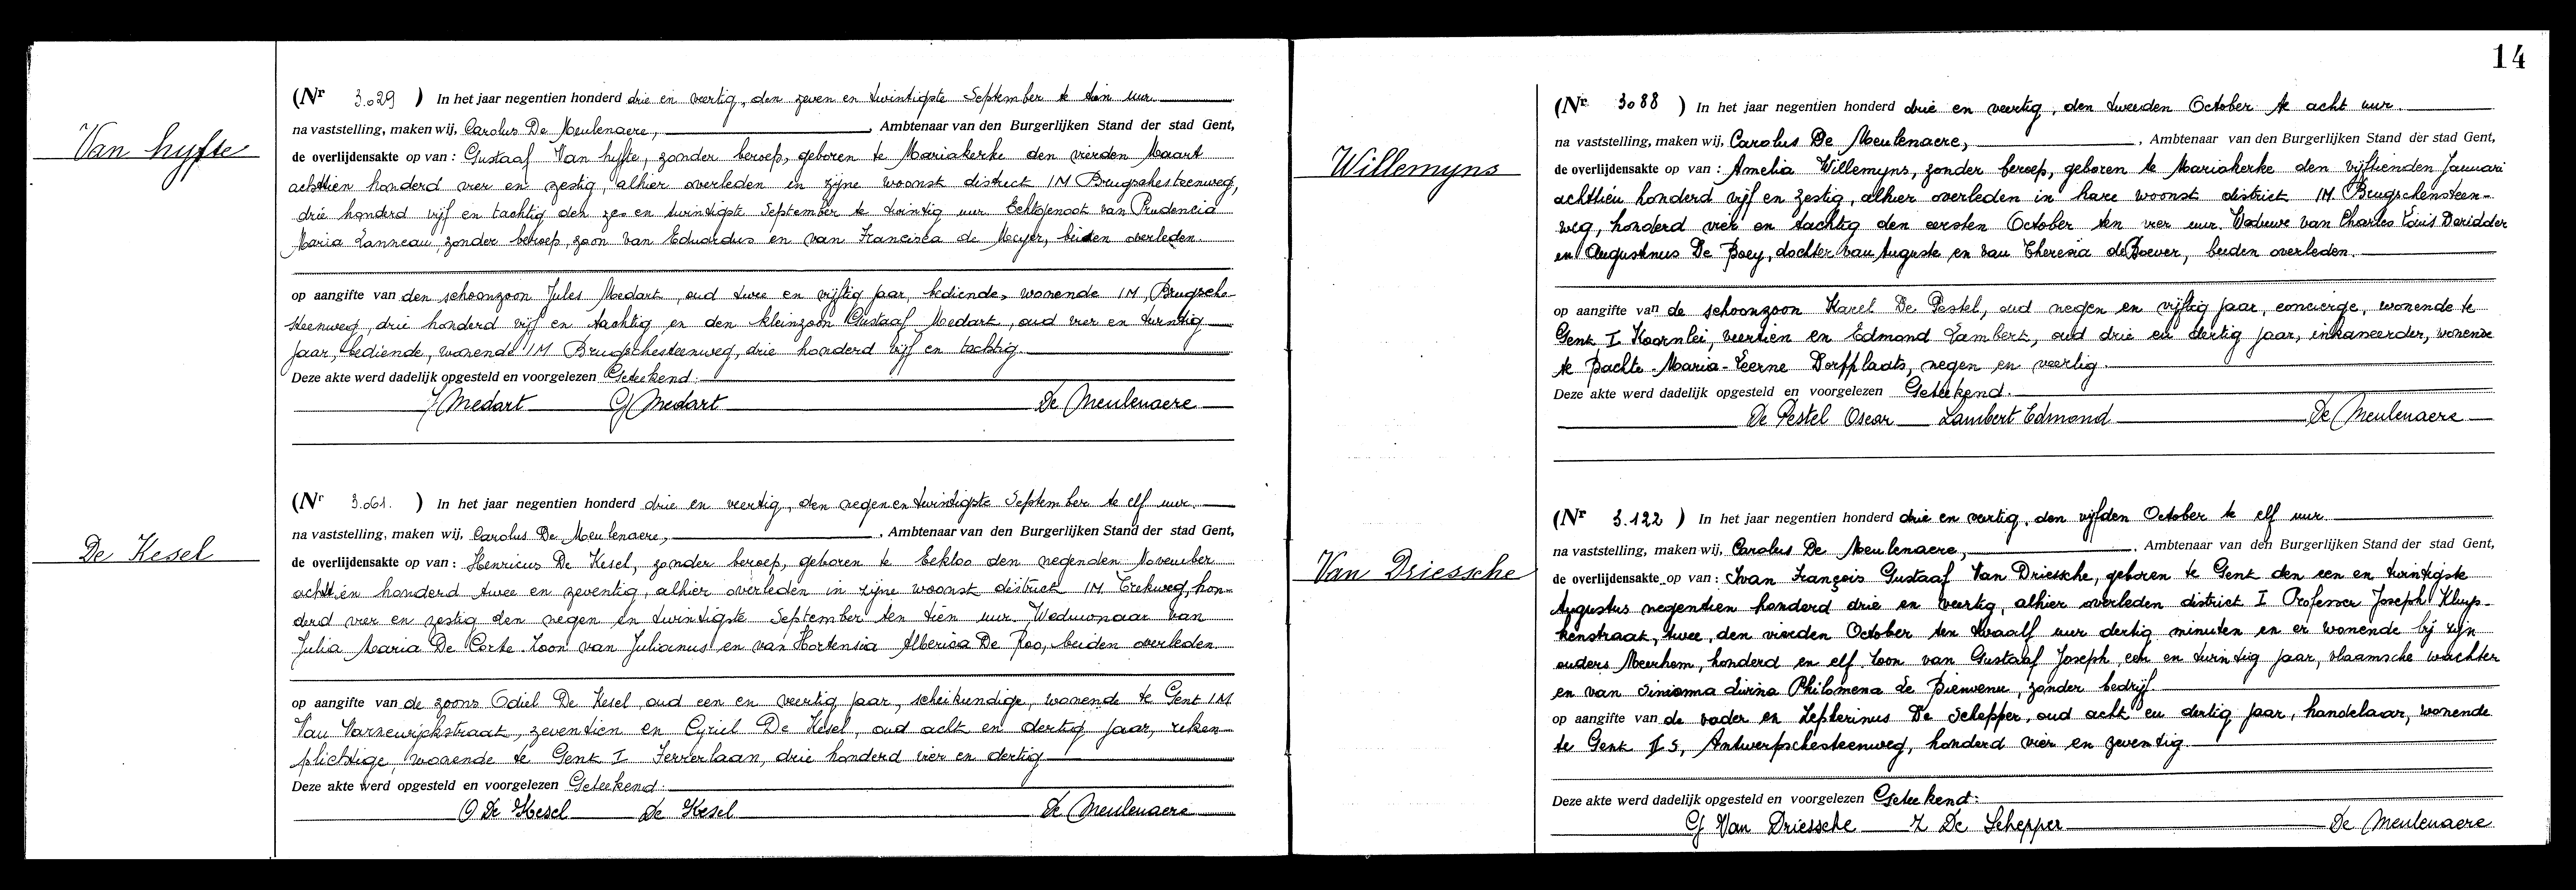 14
Van hyfte
(Nr 3.029 ) In het jaar negentien honderd drie en veertig, den zeven en twintigste September te tien uur.
na vaststelling, maken wij, Carolus De Meulenaere, , Ambtenaar van den Burgerlijken Stand der stad Gent,
de overlijdensakte op van : Gustaaf Van hyfte, zonder beroep, geboren te Mariakerke den vierden Maart
achttien honderd vier en zestig, alhier overleden in zijne woonst district IM Brugschesteenweg,
drie honderd vijf en tachtig den zes en twintigste September te twintig uur Echtgenoot van Prudencia
Maria Lanneau, zonder beroep, zoon van Eduardus en van Francisca de Meyer, beiden overleden.
op aangifte van den schoonzoon Jules Medart, oud twee en vijftig jaar, bediende, wonende IM, Brugsche-
steenweg, drie honderd vijf en tachtig en den kleinzoon Gustaaf Medart, oud vier en twintig
jaar, bediende, wonende IM Brugschesteenweg, drie honderd vijf en tachtig.
Deze akte werd dadelijk opgesteld en voorgelezen Geteekend:
J Medart G Medart De Meulenaere
De Kesel
(Nr 3.061. ) In het jaar negentien honderd drie en veertig, den negen en twintigste September te elf uur.
na vaststelling, maken wij, Carolus De Meulenaere, , Ambtenaar van den Burgerlijken Stand der stad Gent,
de overlijdensakte op van : Henricus De Kesel, zonder beroep, geboren te Eekloo den negenden November
achttien honderd twee en zeventig, alhier overleden in zijne woonst district IM Trekweg, hon-
derd vier en zestig den negen en twintigste September ten tien uur. Weduwnaar van
Julia Maria De Corte. Zoon van Julianus en van Hortensia Alberica De Roo, beiden overleden
op aangifte van de zoons Odiel De Kesel, oud een en veertig jaar, scheikundige, wonende te Gent IM
Van Vaernewijckstraat, zeventien en Cyriel De Kesel, oud acht en dertig jaar, reken-
plichtige, wonende te Gent I Ferrerlaan, drie honderd vier en dertig
Deze akte werd opgesteld en voorgelezen Geteekend:
O De Kesel De Kesel De Meulenaere
Willemyns
(Nr 3088 ) In het jaar negentien honderd drie en veertig, den tweeden October te acht uur.
na vaststelling, maken wij, Carolus De Meulenaere, , Ambtenaar van den Burgerlijken Stand der stad Gent,
de overlijdensakte op van : Amelia Willemyns, zonder beroep, geboren te Mariakerke den vijftienden Januari
achttien honderd vijf en zestig, alhier overleden in hare woonst district IM Brugschensteen-
weg, honderd vier en tachtig den eersten October ten vier uur. Weduwe van Charles Louis Deridder
en Augustinus De Boey, dochter van Auguste en van Theresia de Boever, beiden overleden.
op aangifte van de schoonzoon Karel De Pestel, oud negen en vijftig jaar, concierge, wonende te
Gent I Koornlei, veertien en Edmond Lambert, oud drie en dertig jaar, inkaneerder, wonende
te Bachte-Maria-Leerne Dorpplaats, negen en veertig.
Deze akte werd dadelijk opgesteld en voorgelezen Geteekend.
De Pestel Oscar Lambert Edmond De Meulenaere
Van Driessche
(Nr 3.122 ) In het jaar negentien honderd drie en veertig, den vijfden October te elf uur
na vaststelling, maken wij, Carolus De Meulenaere, , Ambtenaar van den Burgerlijken Stand der stad Gent,
de overlijdensakte op van : Ivan François Gustaaf Van Driessche, geboren te Gent den een en twintigste
Augustus negentien honderd drie en veertig, alhier overleden district I Professor Joseph Kluys-
kenstraat, twee, den vierden October ten twaalf uur dertig minuten en er wonende bij zijn
ouders Meerhem, honderd en elf. Zoon van Gustaaf Joseph, een en twintig jaar, vlaamsche wachter
en van Philomena Le Bienvenu, zonder bedrijf
op aangifte van de vader en Zepherinus De Schepper, oud acht en dertig jaar, handelaar, wonende
te Gent Antwerpschesteenweg, honderd vier en zeventig.
Deze akte werd dadelijk opgesteld en voorgelezen Geteekend:
G Van Driessche Z De Schepper De Meulenaere